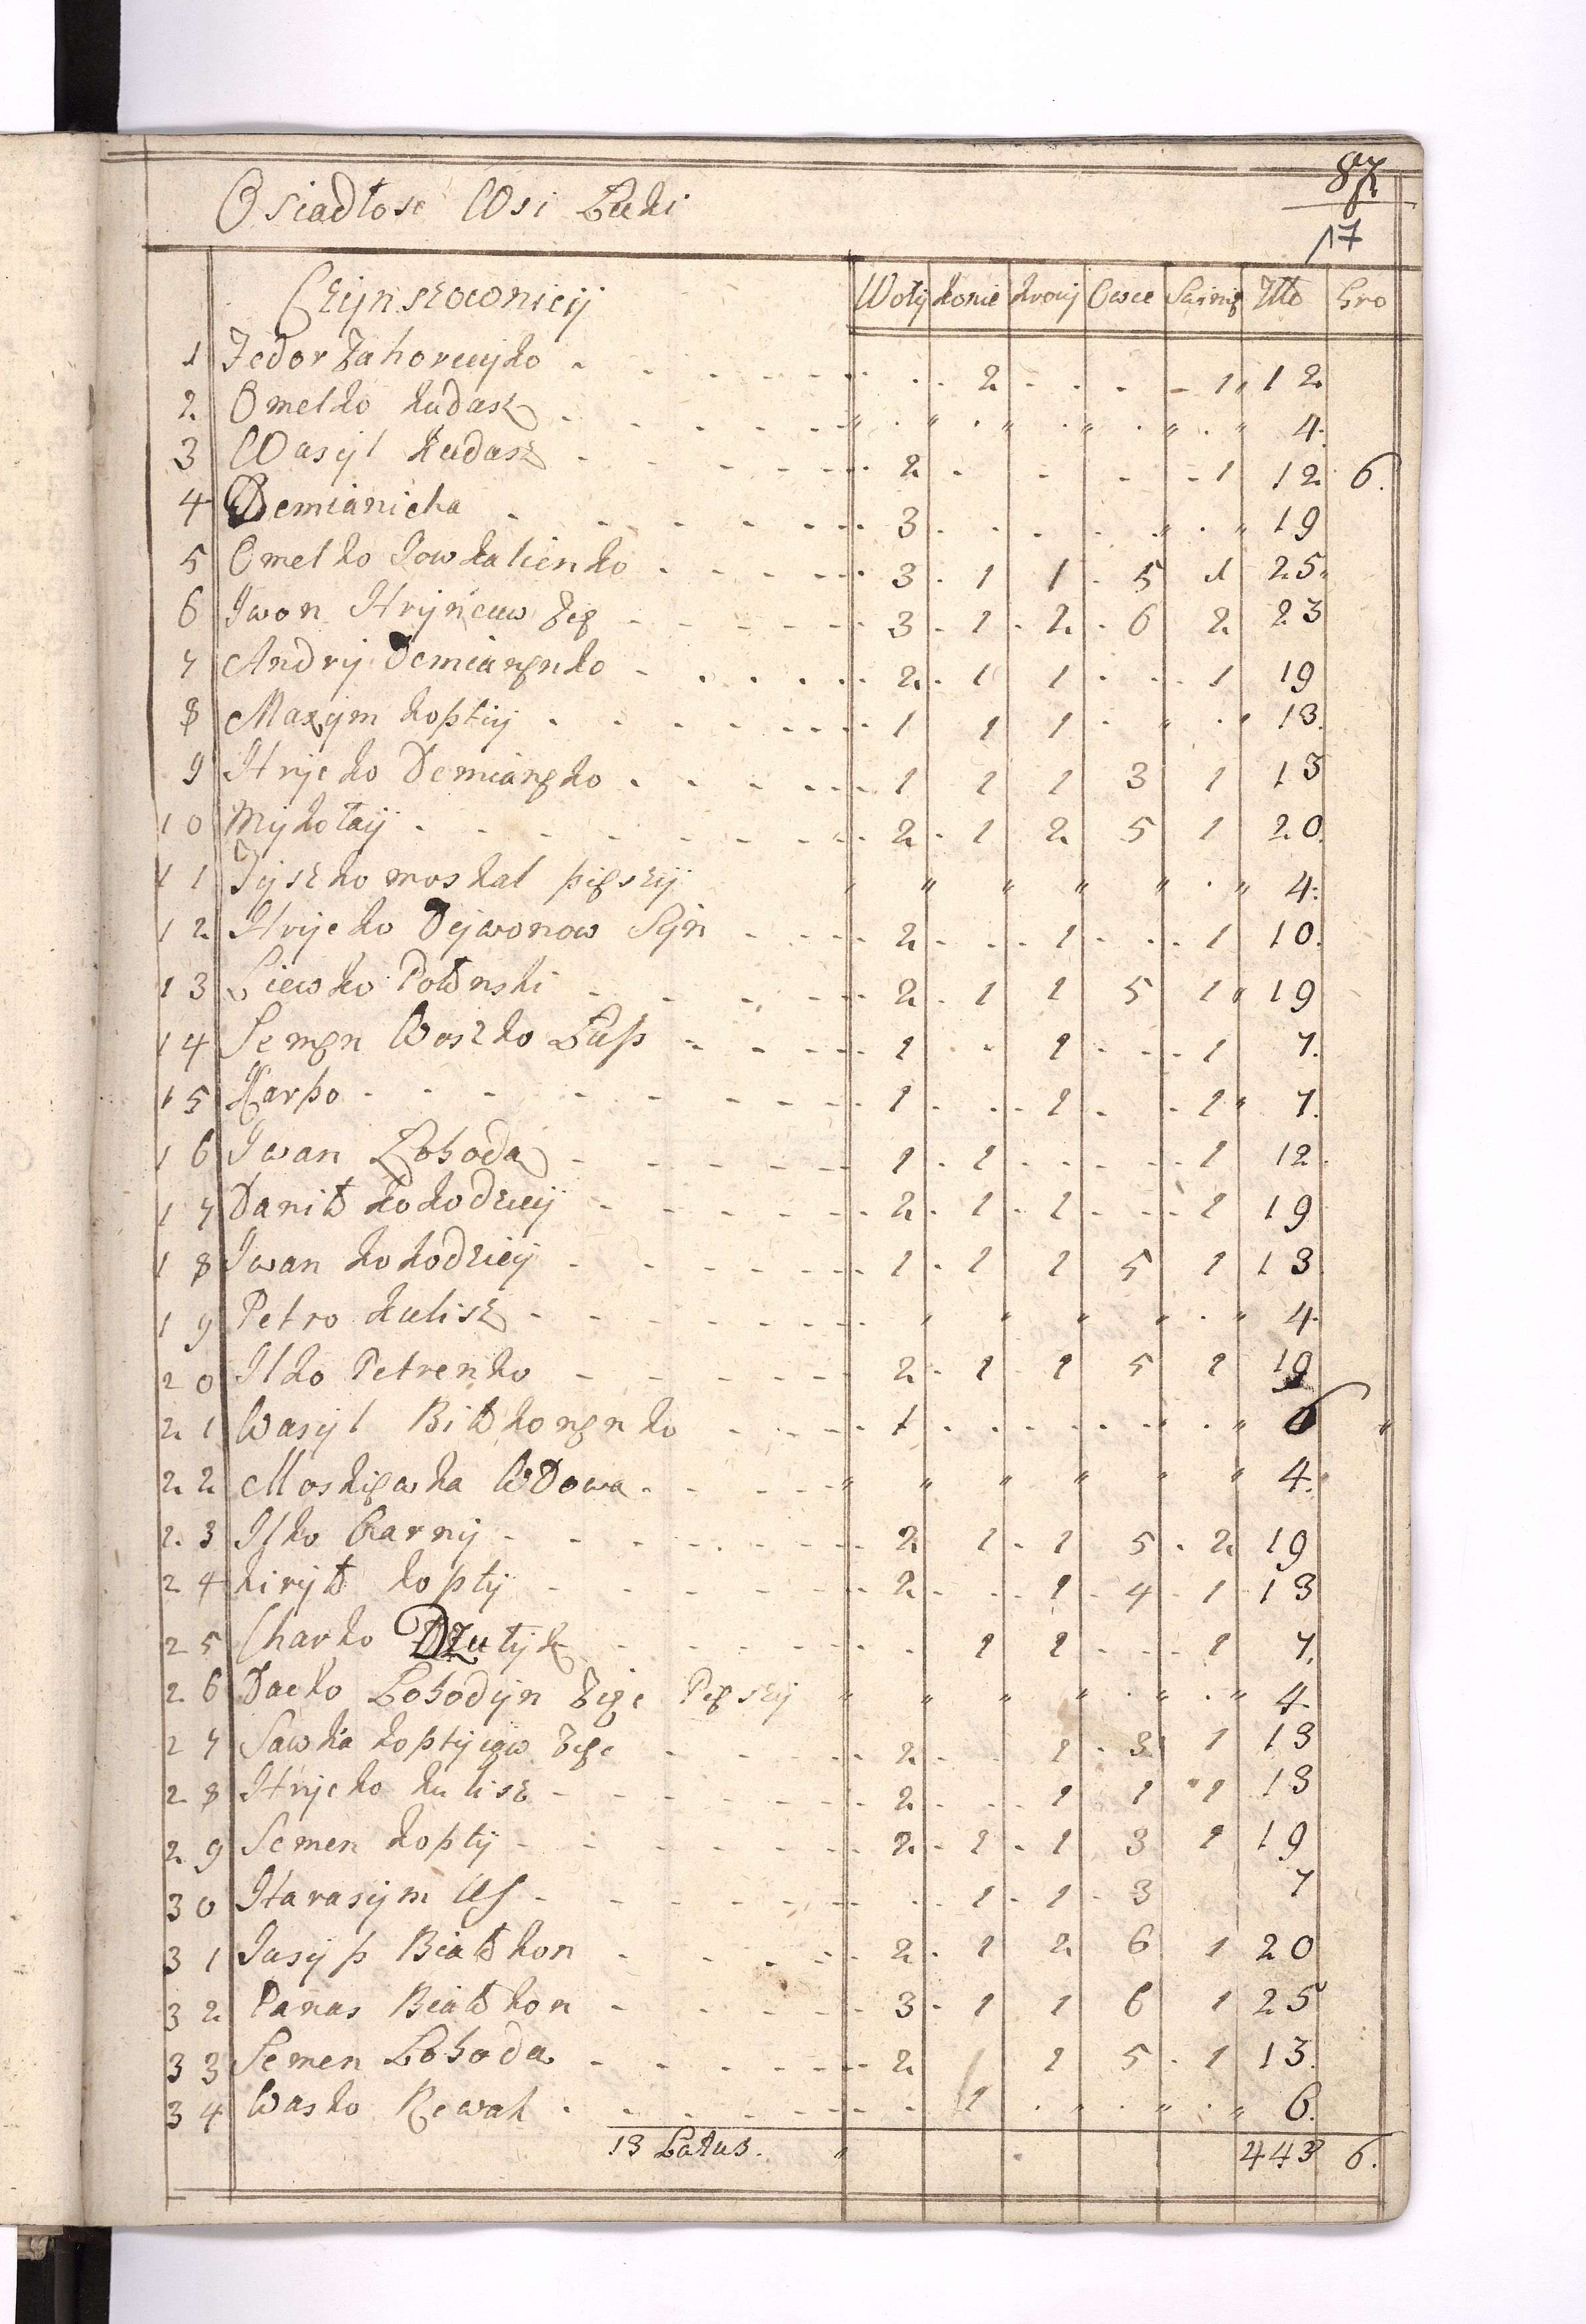 87
17
Osiadłosc Wsi Łuki
Czÿnszownicÿ Wołÿ Konie Krowÿ Owce Swinie Zło Gro
1 Fedor Zahoruÿko 2 1 12
2 Omelko Kudasz 4
3 Wasÿl Kudasz 2 1 12 6
4 Demianicha 3 19
5 Omelko 3 1 1 5 1 25
6 Iwon Hrÿńcuw Zięć 3 1 2 6 2 23
7 Andrÿ Demianenko 2 1 1 1 19
8 Maxÿm Koptiÿ 1 1 1 13
9 Hrÿcko Demianeko 1 1 1 3 1 13
10 Mÿkołaÿ 2 1 2 5 1 20
11 Tÿszko moskal pieszÿ 4
12 Hrÿcko Dÿwonow Sÿn 2 1 1 10
13 Lewko Połonski 2 1 1 5 1 19
14 Semen Woszko Łup 1 1 1 7
15 Karpo 1 1 1 7
16 Iwan Łoboda 1 1 1 12
17 Daniło Kołodziÿ 2 1 1 1 19
18 Iwan Kołodziÿ 1 1 1 5 1 13
19 Petro Kulisz 4
20 Ilko Petrenko 2 1 1 5 1 19
21 Wasÿl Biłokonenko 1 6
22 Moskiewka Wdowa 4
23 Ilko Czarnÿ 2 1 1 5 2 19
24 Kirÿło Koptÿ 2 1 4 1 13
25 Charko Dzulÿk 1 1 1 7
26 Dacko Łobodÿn Zięć Pieszÿ 4
27 Sawka Koptÿiow Zięć 2 1 3 1 13
28 Hrÿcko Kulisz 2 1 1 1 13
29 Semen Koptÿ 2 1 1 3 1 19
30 Harasÿm Us 1 1 3 7
31 Jusÿp Białokon 2 1 2 6 1 20
32 Panas Białokon 3 1 1 6 1 25
33 Semen Łoboda 2 1 5 1 13
34 Wasko Rewak 1 6
13 Latus 443 6